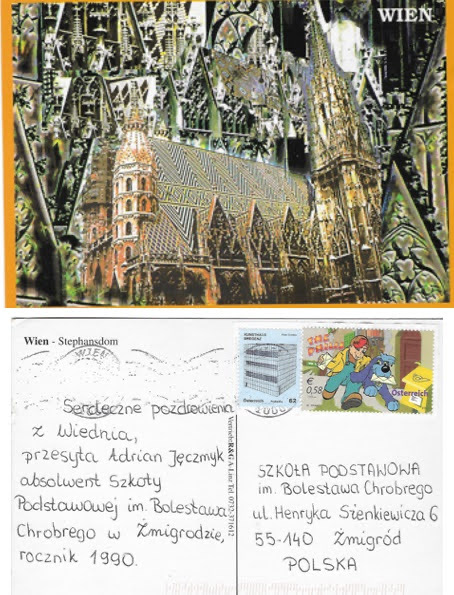 WIEN
Wien - Stephansdom
WIEN
Serdeczne pozdrowienia
z Wiednia,
przesyła Adrian Jęczmyk
absolwent Szkoły
Podstawowej im. Bolesława
Chrobrego w Żmigrodzie,
rocznik 1990.
Vertrieb: R&G A-Linz Tel. 0732-371612
KUNSTHAUS
BREGENZ
Österreich
62
€
0,58
Österreich
SZKOŁA PODSTAWOWA
im. Bolesława Chrobrego
ul. Henryka Sienkiewicza 6
55-140 Żmigród
POLSKA